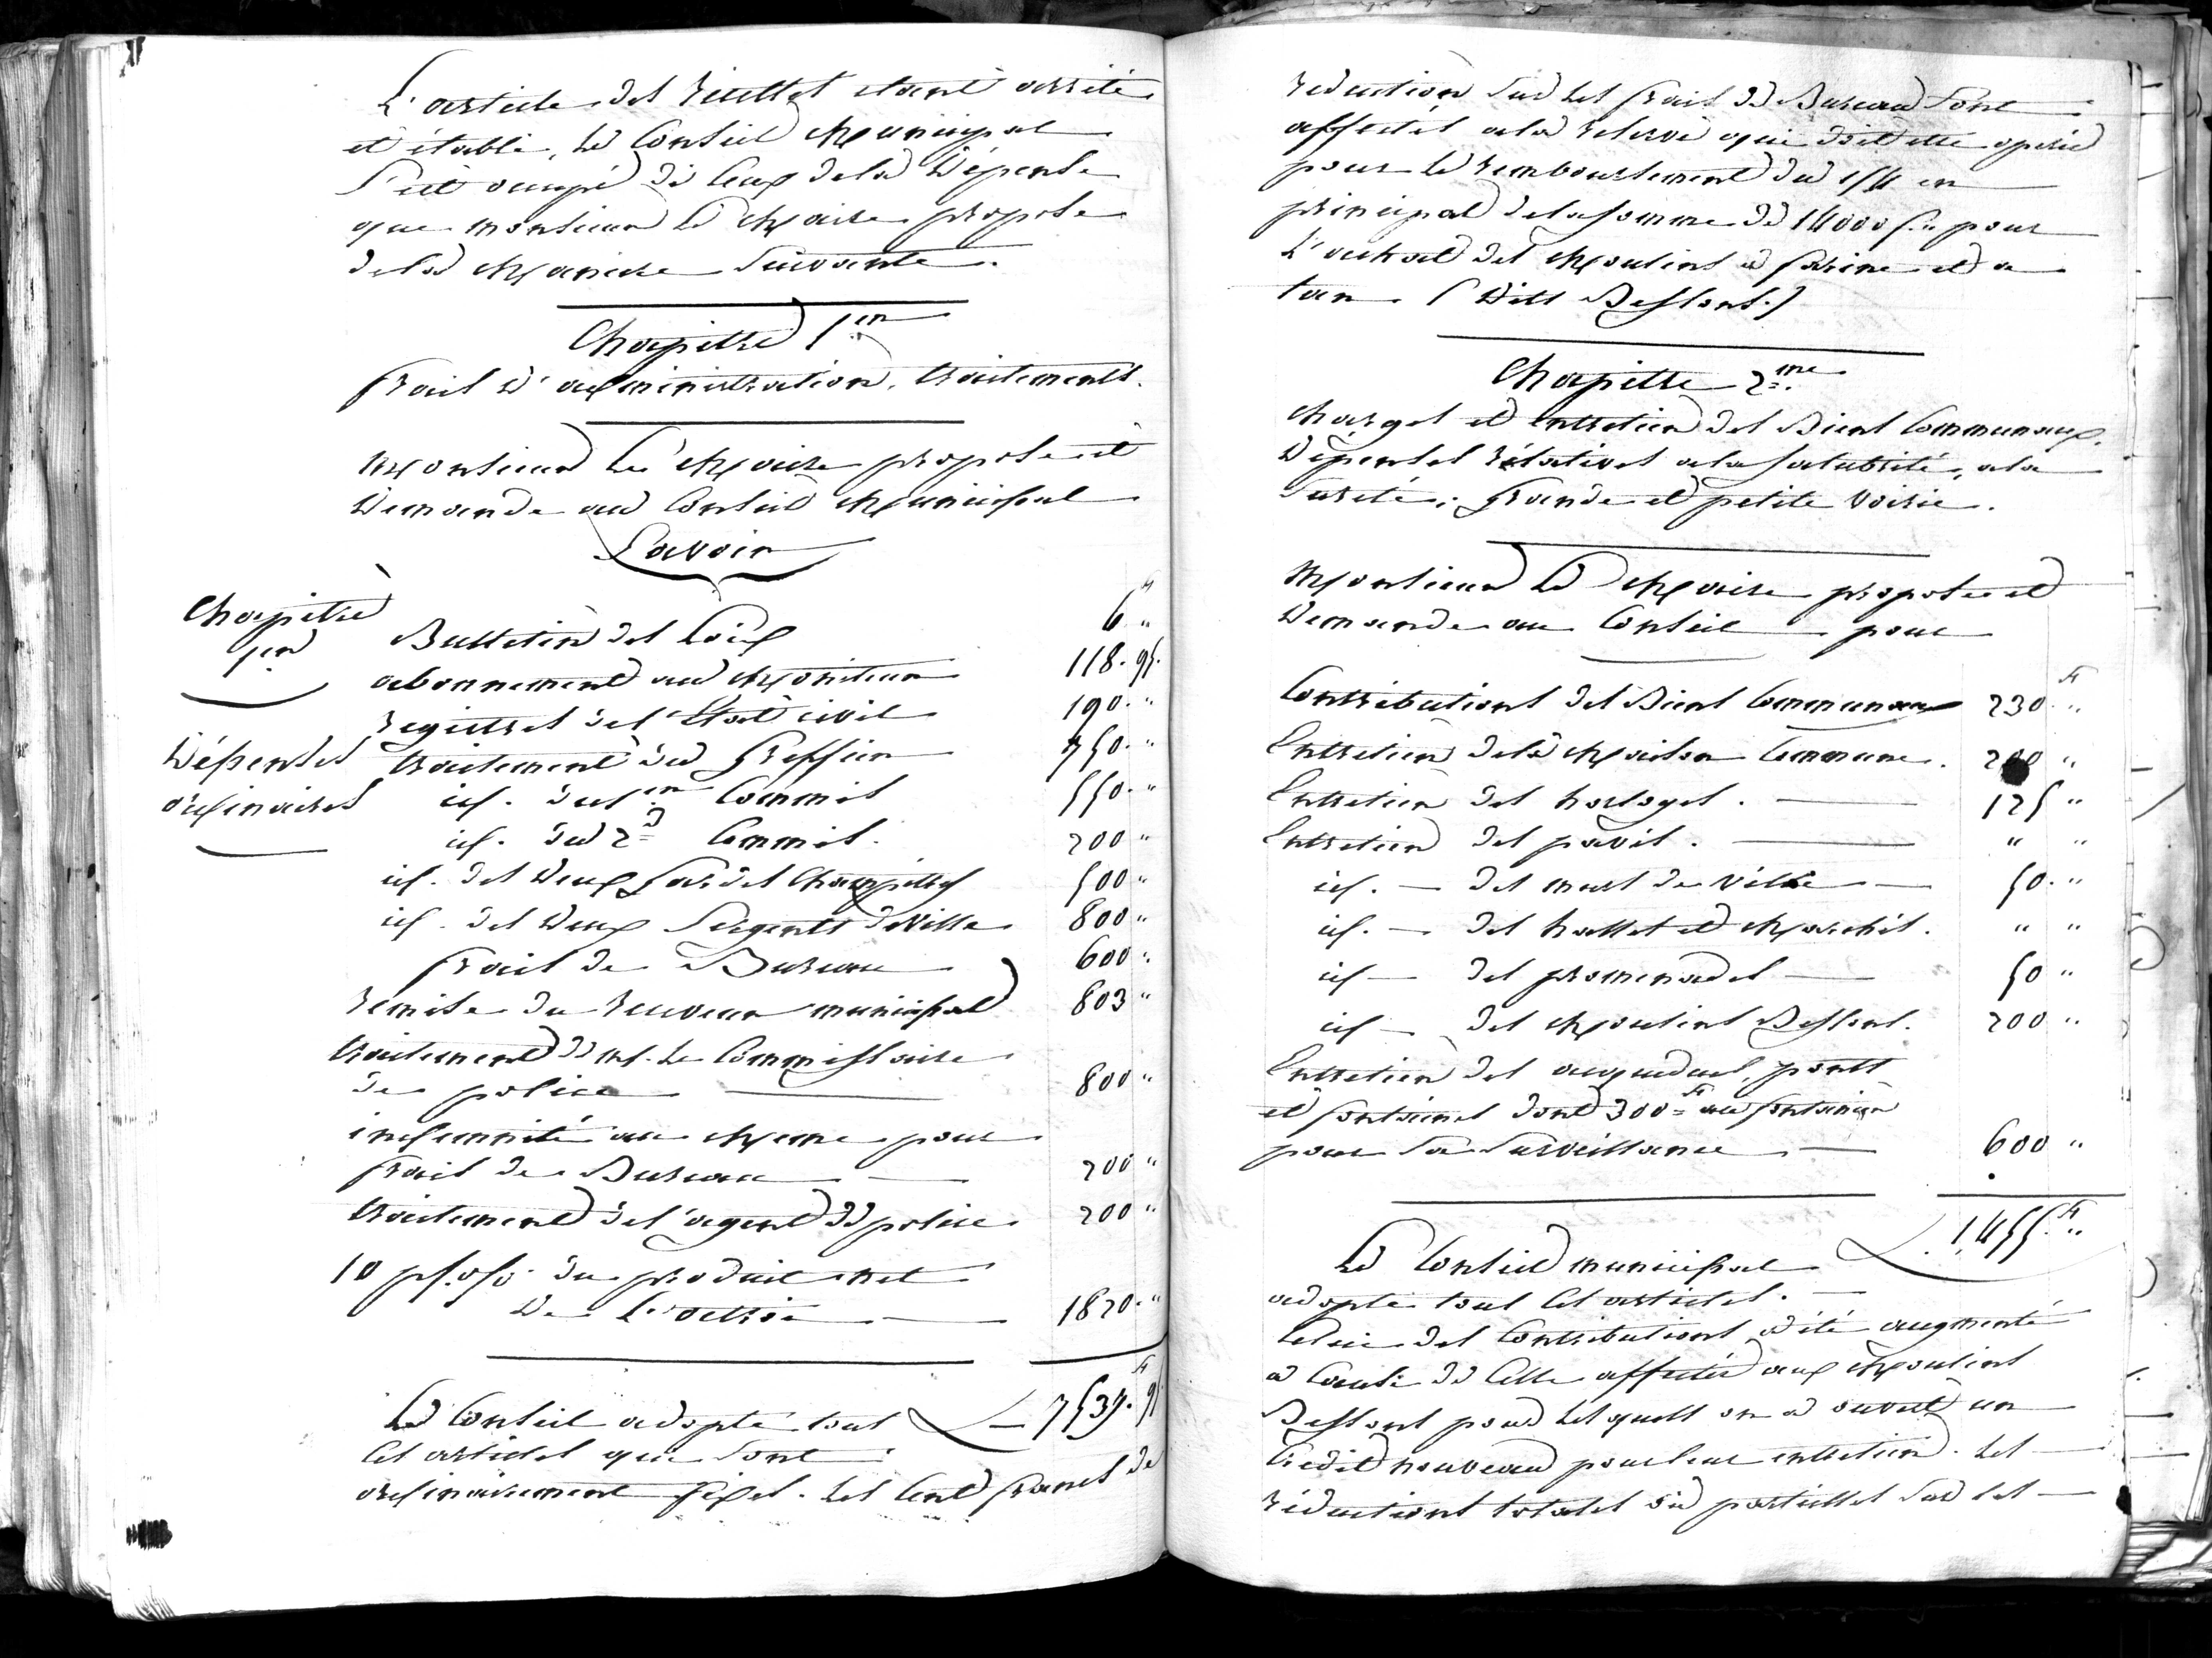 L'article des recettes etant arreté
et établi, le Conseil Municipal
s'est occupé de ceux de la Dépense
que monsieur le Maire propose
de la Maniere Suivante.
Chapitre 1er
frais d'administration, traitements.
Monsieur le Maire propose et
Demande au Conseil Municipal
Savoir
Chapitre
1er
Dépenses
ordinaires
Bulletin des Loix 6 f "
abonnement au Moniteur 118. 95.
registres de l'Etat civil 190. "
traitement du Greffier 750. "
id. du 1er Commis 550. "
id. du 2d Commis. 200 "
id. des deux Gardes Champêtres 500 "
id. des deux Sergents de Ville 800 "
frais de Bureau 600 "
remise du receveur municipal 803 "
traitement de mr. le Commissaire
de police 800 "
indemnité au même pour
frais de Bureau 200 "
traitement de l'agent de police 200 "
10 p. o/o du produit net
De l'octroi 1820. "
Le Conseil adopte tous 7537 f. 95
ces articles qui sont
ordinairement fixes. les Cent francs de
reduction sur les frais de Bureau sont
affectés a la reserve qui doit etre operée
pour le remboursement du 1/4 en
principal de la somme de 14000 f. " pour
L'achat des Moulins a farine et a
tan (Dits Bessons.)
Chapitre 2me.
Charges et entretien des Biens Communaux.
Dépenses rélatives a la salubrité, a la
sureté, Grande et petite Voirie.
Monsieur le Maire propose et
Demande au Conseil pour
Contributions des Biens Communaux 230 f "
Entretien de la Maison Commune. 200 "
Entretien des horloges. 125 "
Entretien des pavés. " "
id. — des murs de Ville 50. "
id. — des halles et Marchés. " "
id — des promenades 50 "
id — des Moulins Bessons. 200 "
Entretien des acqueducs, ponts
et fontaines dont 300 f au fontainier
pour sa surveillance 600 "
1,455 f. "
Le Conseil municipal
adopte tous ces articles.
Celui des Contributions a été augmenté
a Cause de Celle affectée aux Moulins
Bessons pour lesquels on a ouvert un
Crédit nouveau pour leur entretien. les
réductions totales ou partielles sur les